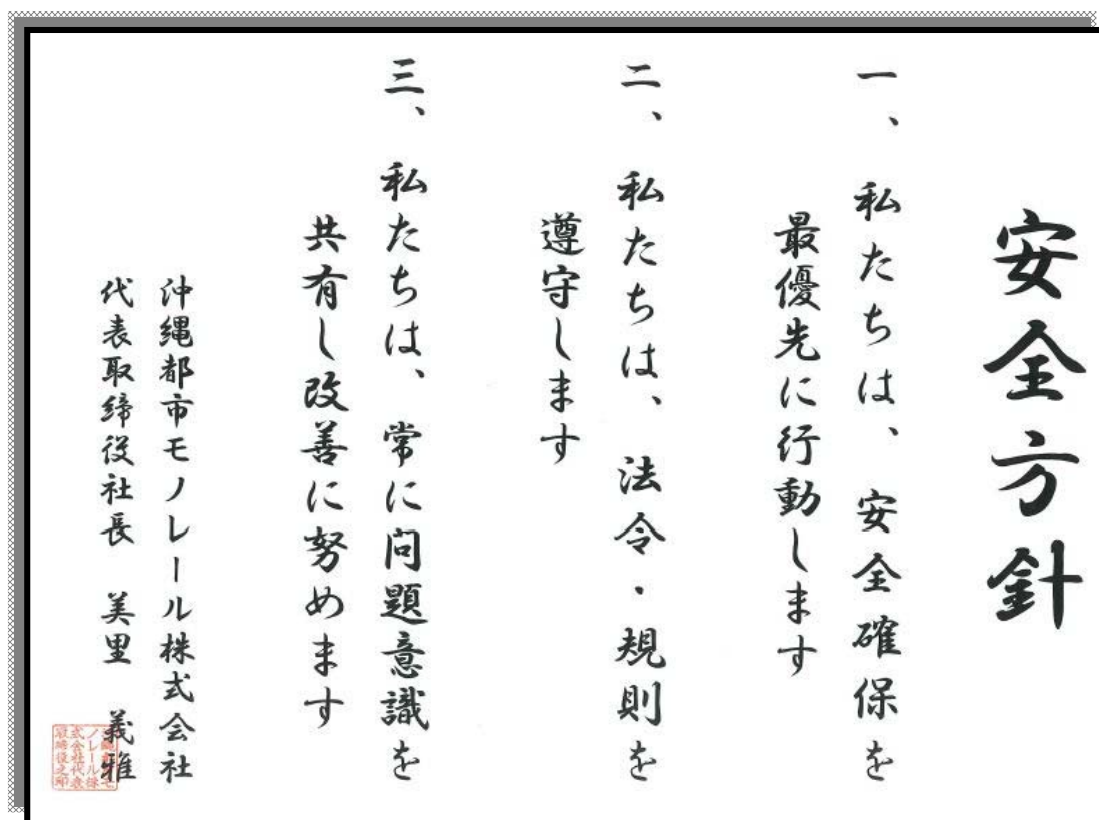 安全方針
一、私たちは、安全確保を
最優先に行動します
二、私たちは、法令・規則を
遵守します
三、私たちは、常に问題意識を
共有し改善に努めます
沖縄都市モノレール株式会社
代表取締役社長 美里 義雅